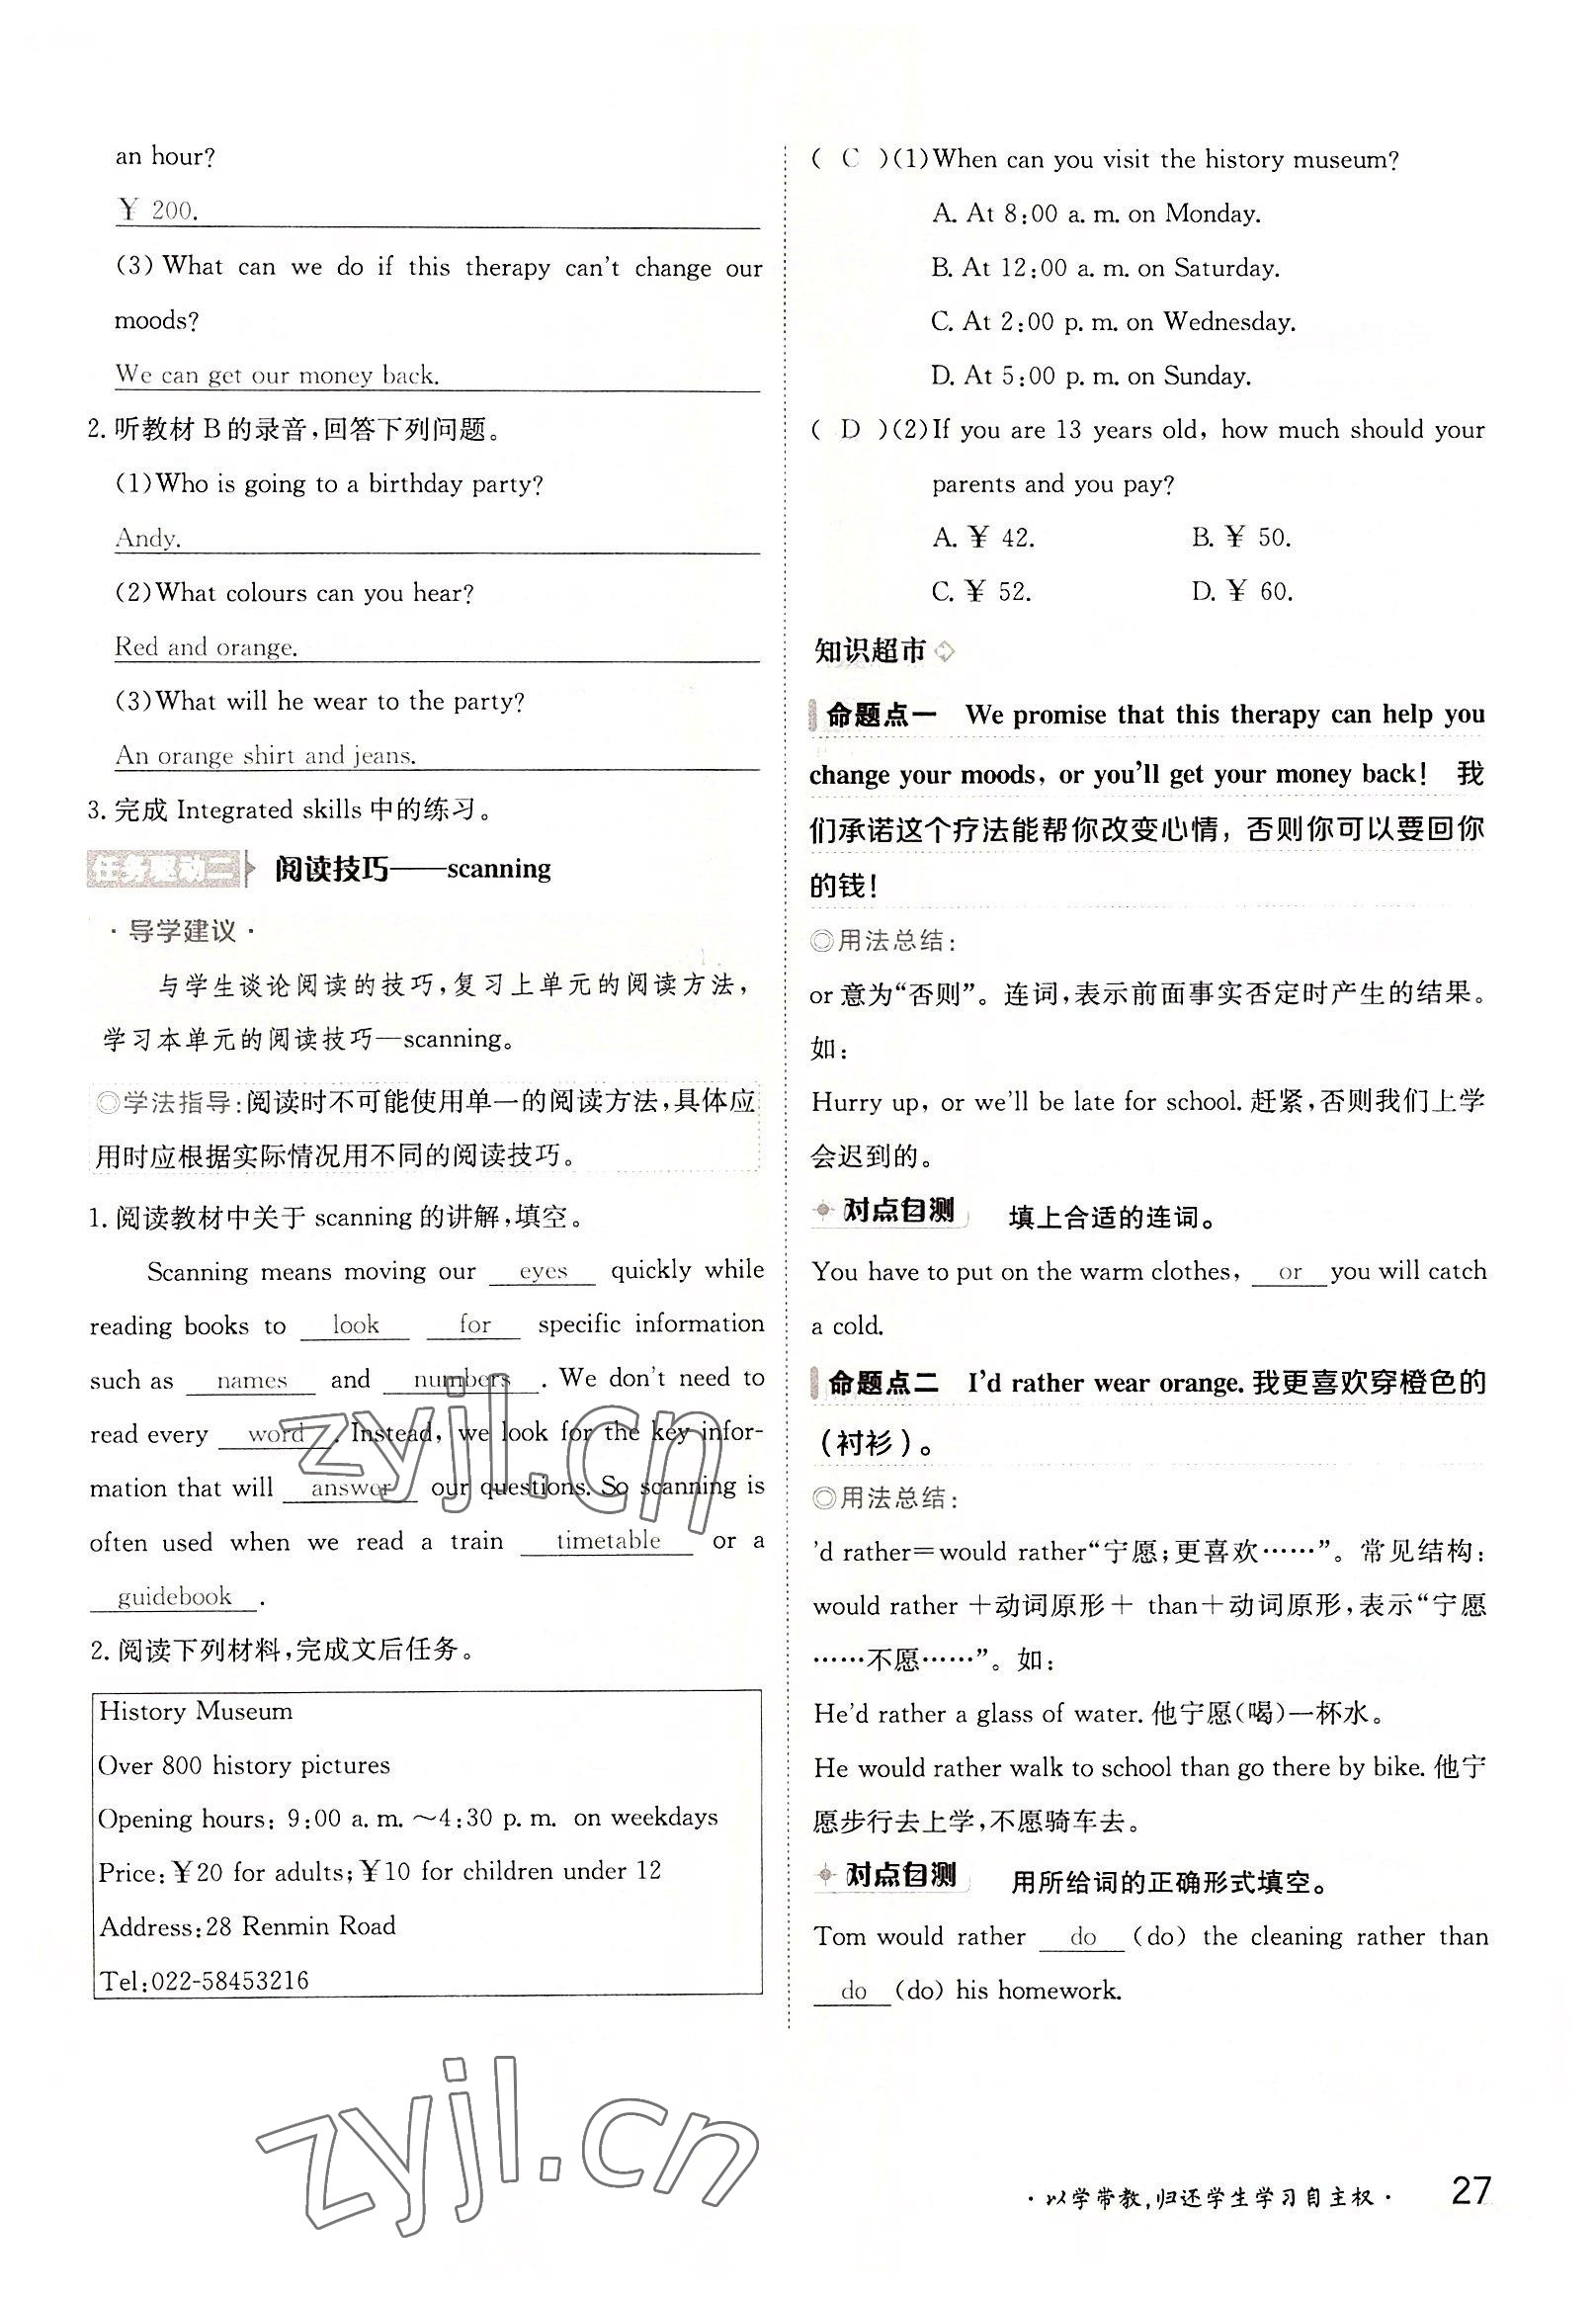 an hour?
¥ 200.
(3) What can we do if this therapy can't change our
moods?
We can get our money back.
2. 听教材 B 的录音,回答下列问题。
(1)Who is going to a birthday party?
Andy.
(2)What colours can you hear?
Red and orange.
(3)What will he wear to the party?
An orange shirt and jeans.
3. 完成 Integrated skills 中的练习。
任务驱动二 阅读技巧——scanning
·导学建议·
与学生谈论阅读的技巧,复习上单元的阅读方法,
学习本单元的阅读技巧—scanning。
◎学法指导:阅读时不可能使用单一的阅读方法,具体应
用时应根据实际情况用不同的阅读技巧。
1. 阅读教材中关于 scanning 的讲解,填空。
Scanning means moving our eyes quickly while
reading books to look for specific information
such as names and numbers. We don't need to
read every word. Instead, we look for the key infor-
mation that will answer our questions. So scanning is
often used when we read a train timetable or a
guidebook.
2. 阅读下列材料,完成文后任务。
History Museum
Over 800 history pictures
Opening hours: 9:00 a. m. ～4:30 p. m. on weekdays
Price:¥20 for adults;¥10 for children under 12
Address:28 Renmin Road
Tel:022-58453216
( C )(1)When can you visit the history museum?
A. At 8:00 a. m. on Monday.
B. At 12:00 a. m. on Saturday.
C. At 2:00 p. m. on Wednesday.
D. At 5:00 p. m. on Sunday.
( D )(2)If you are 13 years old, how much should your
parents and you pay?
A. ¥ 42. B. ¥ 50.
C. ¥ 52. D. ¥ 60.
知识超市
命题点一 We promise that this therapy can help you
change your moods, or you'll get your money back! 我
们承诺这个疗法能帮你改变心情,否则你可以要回你
的钱!
◎用法总结:
or 意为“否则”。连词,表示前面事实否定时产生的结果。
如:
Hurry up, or we'll be late for school. 赶紧,否则我们上学
会迟到的。
对点自测 填上合适的连词。
You have to put on the warm clothes, or you will catch
a cold.
命题点二 I'd rather wear orange. 我更喜欢穿橙色的
(衬衫)。
◎用法总结:
'd rather=would rather“宁愿;更喜欢……”。常见结构:
would rather +动词原形+ than+动词原形,表示“宁愿
……不愿……”。如:
He'd rather a glass of water. 他宁愿(喝)一杯水。
He would rather walk to school than go there by bike. 他宁
愿步行去上学,不愿骑车去。
对点自测 用所给词的正确形式填空。
Tom would rather do (do) the cleaning rather than
do (do) his homework.
zyjl.cn
zyjl.cn
·以学带教,归还学生学习自主权· 27